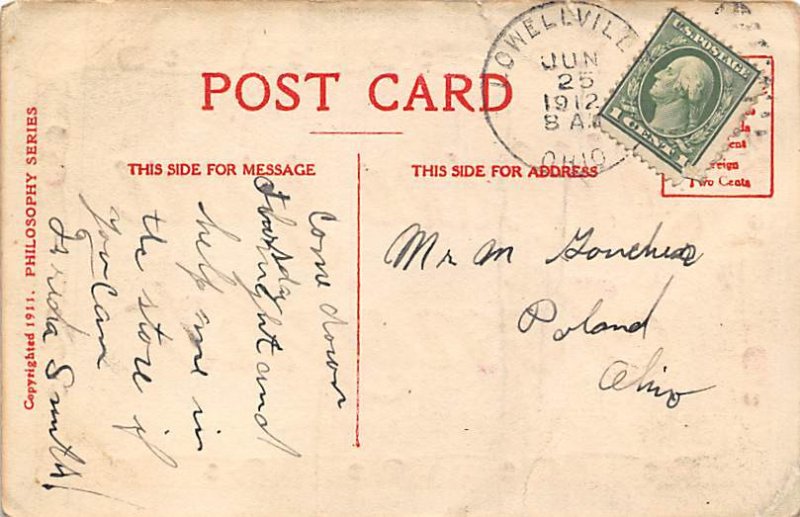 POST CARD
THIS SIDE FOR MESSAGE
THIS SIDE FOR ADDRESS
Copyrighted 1911. PHILOSOPHY SERIES
LOWELLVILLE
JUN
25
1912
8 A
OHIO
U.S. POSTAGE
1 CENT 1
Two Cents
Come down
Thursday
night and
help me in
the store if
you can
Frieda Smith
Mr M
Poland
Ohio